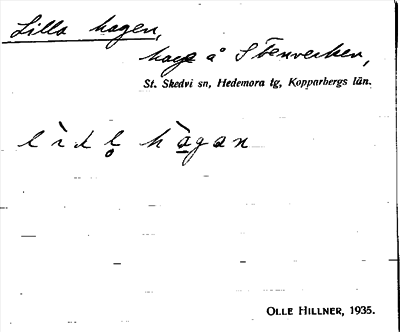 Lilla hagen,
hage å Stenvecken,
St. Skedvi sn, Hedemora tg, Kopparbergs län.
lìtl̥ hàgan
OLLE HILLNER, 1935.